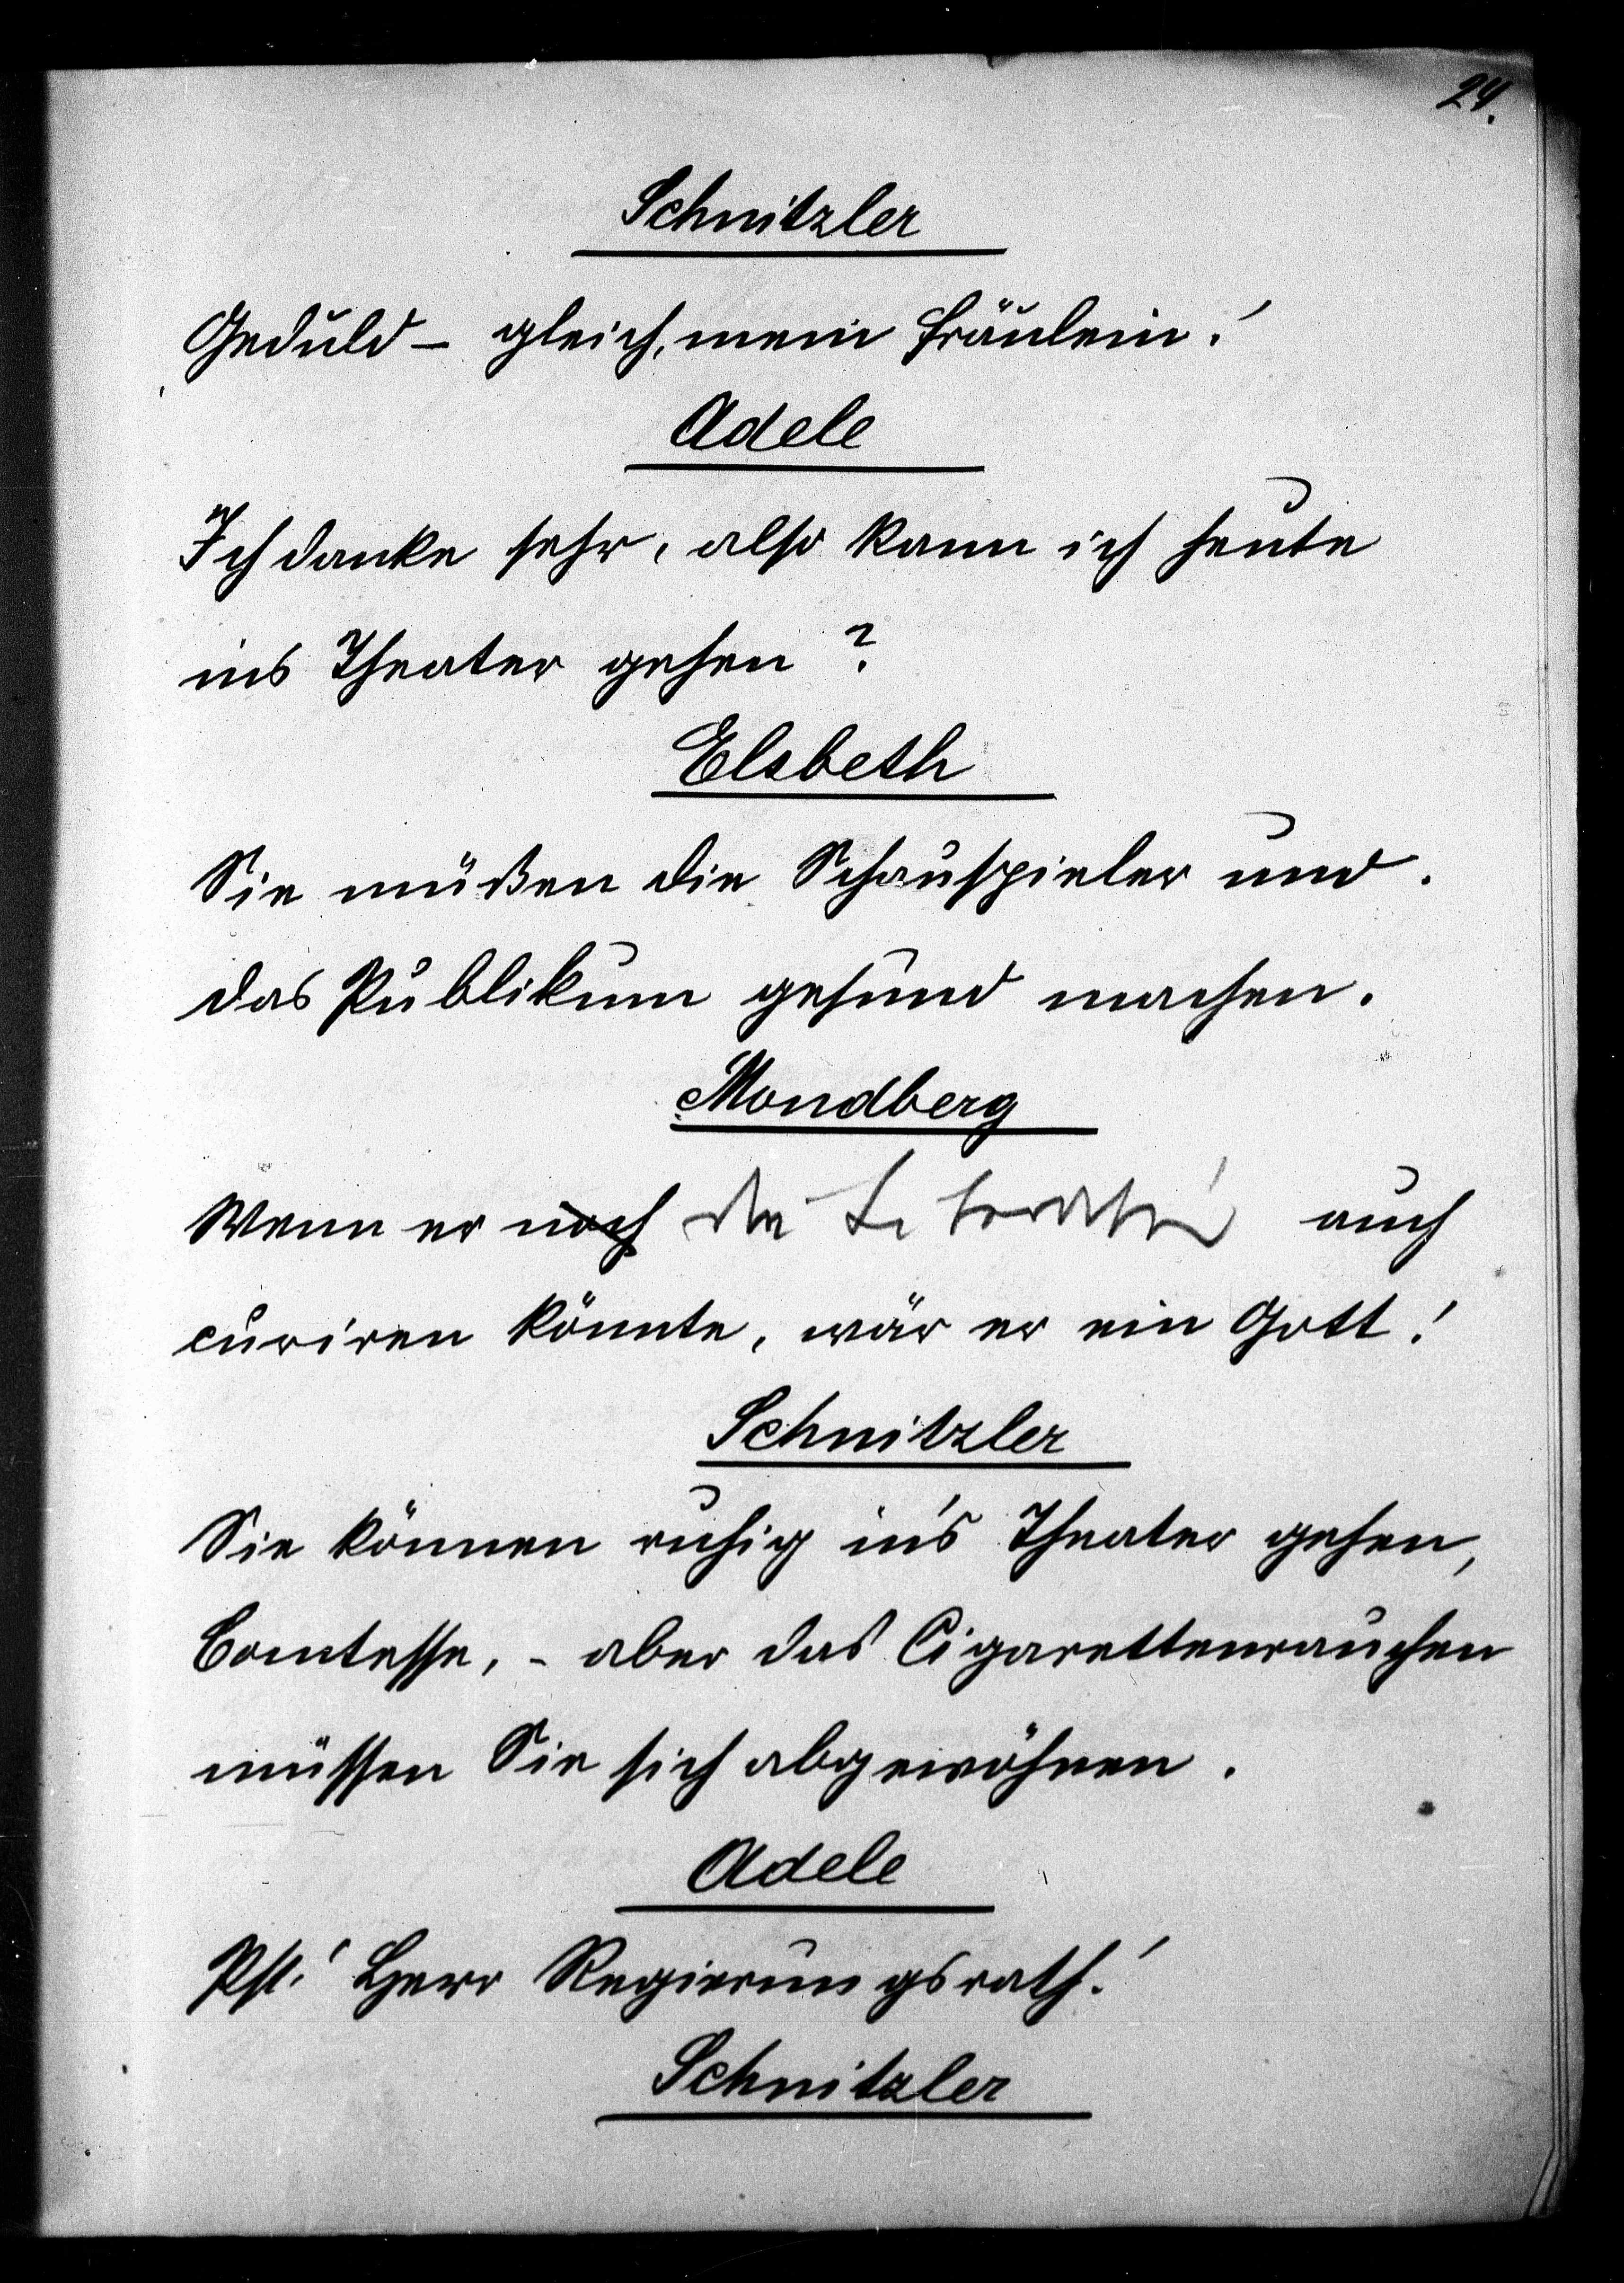 24.
Schnitzler
Geduld – gleich, mein Fräulein!
Adele
Ich danke sehr, also kann ich heute
ins Theater gehen?
Elsbeth
Sie müßen die Schauspieler und
das Publikum gesund machen.
Mondberg
Wenn er noch die Literatur auch
curiren könnte, wär er ein Gott!
Schnitzler
Sie können ruhig in's Theater gehen,
Comtesse, – aber das Cigarettenrauchen
müssen Sie sich abgewöhnen.
Adele
Pst! Herr Regierungsrath!
Schnitzler